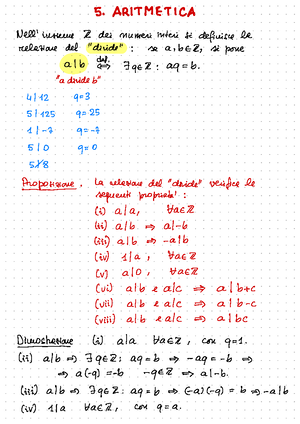 5. ARITMETICA
Nell'insieme ℤ dei numeri interi si definisce la
relazione del "divide" : se a,b∈ℤ, si pone
a|b def. ⟺ ∃q∈ℤ : aq=b.
"a divide b"
4|12 q=3
5|125 q=25
1|-7 q=-7
5|0 q=0
5∤8
Proposizione. La relazione del "divide" verifica le
seguenti proprietà :
(i) a|a, ∀a∈ℤ
(ii) a|b ⇒ a|-b
(iii) a|b ⇒ -a|b
(iv) 1|a, ∀a∈ℤ
(v) a|0, ∀a∈ℤ
(vi) a|b e a|c ⇒ a|b+c
(vii) a|b e a|c ⇒ a|b-c
(viii) a|b e a|c ⇒ a|bc
Dimostrazione (i) a|a ∀a∈ℤ, con q=1.
(ii) a|b ⇒ ∃q∈ℤ: aq=b ⇒ -aq=-b ⇒
⇒ a(-q)=-b -q∈ℤ ⇒ a|-b.
(iii) a|b ⇒ ∃q∈ℤ: aq=b ⇒ (-a)(-q)=b ⇒ -a|b
(iv) 1|a ∀a∈ℤ, con q=a.